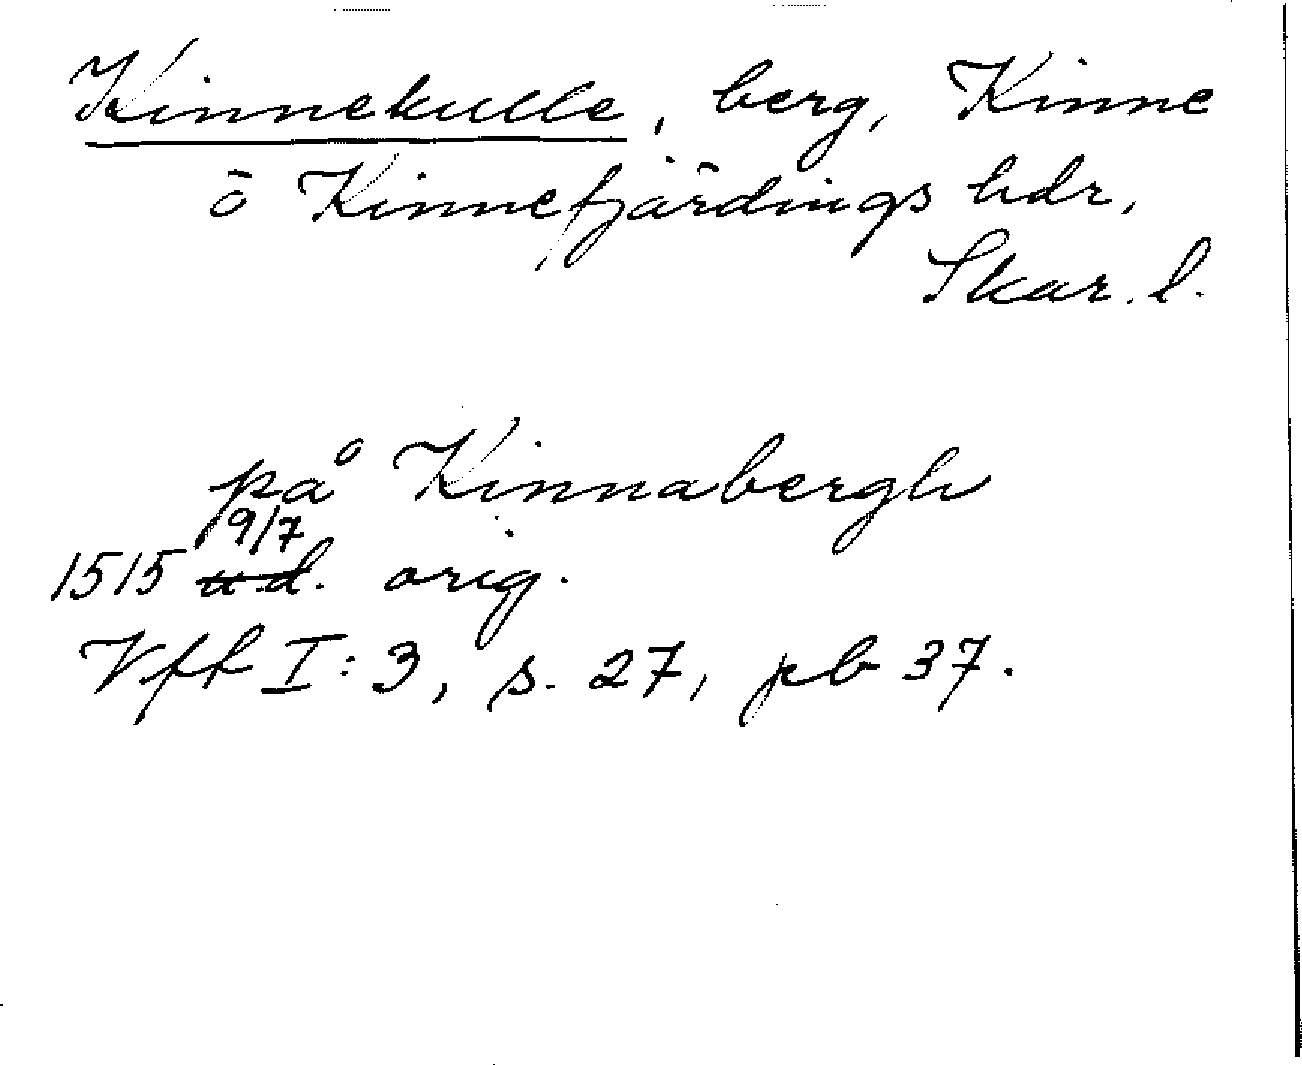 Kinnekulle, berg, Kinne
o Kinnefjärdings hdr,
Skar. l.
på Kinnabergh
9/7
1515 ud. orig.
Vff I:3, s. 27, pb 37.